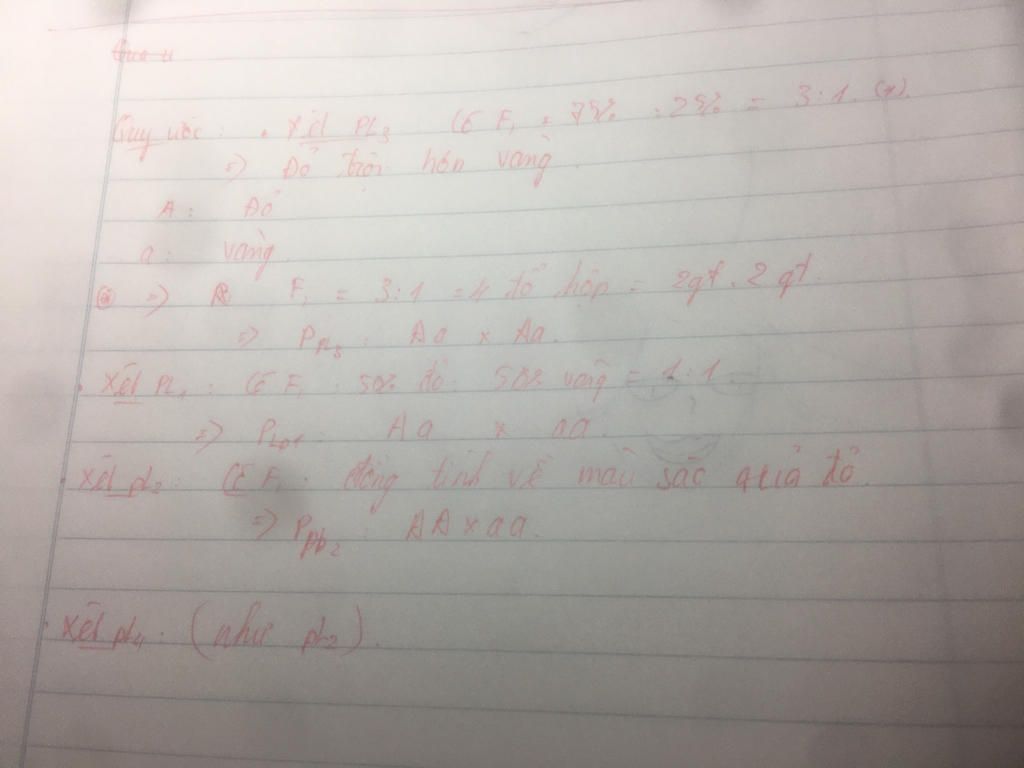 Quy ước: . Xét PL3 Có F1 = 75% : 25% = 3:1. (*).
=> Đỏ trội h/hàn vàng.
A: Đỏ
a: vàng.
=> F1 = 3:1 = 4 tổ hợp = 2gt . 2gt.
=> P PL3 : Aa x Aa.
. Xét PL1: Có F1 : 50% đỏ : 50% vàng = 1:1.
=> PL01 : Aa x aa.
. Xét pL2: Có F1 : đồng tính về màu sắc quả đỏ.
=> P pb2 : AA x aa.
. Xét pL4 : (như pL2).